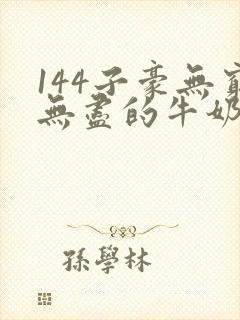 144子豪無窮
無盡的牛奶
孫學林